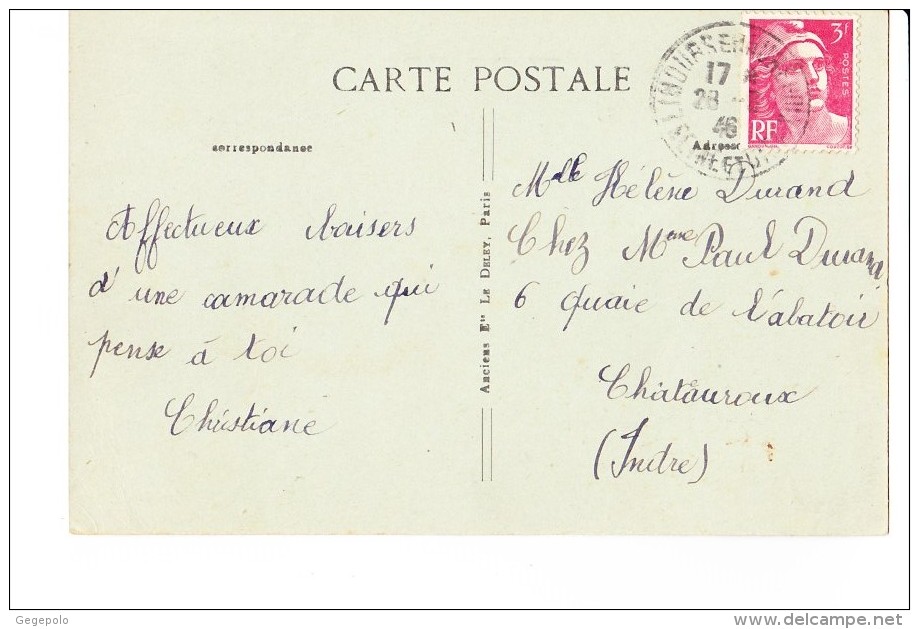 CARTE POSTALE
correspondance
Affectueux baisers
d'une camarade qui
pense à toi
Christiane
Anciens Ets Le Deley, Paris
17
28
46
3f
POSTES
RF
Adresse
Mlle Hélène Durand
Chez Mme Paul Durand
6 quaie de l'abatoir
Châteauroux
(Indre)
Gegepolo
delcampe.net